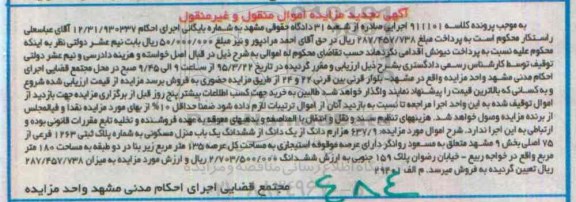 آگهی تجدید مزایده اموال منقول و غیرمنقول
به موجب پرونده کلاسه ۹۱۱۱۰۱ اجرایی صادره از شعبه ۳۱ دادگاه حقوقی مشهد به شماره بایگانی اجرای احکام ۱۲/۳۱/۹۳۰۳۳۷ آقای عباسعلی
راستکار محکوم است به پرداخت مبلغ ۲۸۷/۴۵۷/۷۳۸ ریال در حق آقای احمد مرادپور و نیز مبلغ ۵۰/۰۰۰/۰۰۰ ریال بابت نیم عشر دولتی نظر به اینکه
محکوم علیه نسبت به پرداخت دیونش اقدامی نکرده‌اند حسب تقاضای محکوم له اموالی به شرح ذیل در قبال اصل خواسته و هزینه دادرسی و نیم عشر دولتی
توقیف توسط کارشناس رسمی دادگستری بشرح ذیل ارزیابی و مقرر گردیده در تاریخ ۹۵/۳/۲۲ از ساعت ۹ الی ۹/۴۵ صبح در محل مجتمع قضایی اجرای
احکام مدنی مشهد واحد مزایده واقع در مشهد - بلوار قرنی بین قرنی ۲۲ و ۲۴ از طریق مزایده حضوری به فروش برسد مزایده از قیمت ارزیابی شده شروع
و به کسانی که بالاترین قیمت را پیشنهاد نمایند واگذار خواهد شد طالبین به خرید جهت کسب اطلاعات بیشتر پنج روز قبل از برگزاری مزایده جهت بازدید از
اموال توقیف شده به این واحد اجرا مراجعه تا نسبت به بازدید آنان از اموال ترتیبات لازم داده شود ضمنا حداقل ۱۰% از بهای مورد مزایده نقدا و فی‌المجلس
از برنده مزایده وصول خواهد شد. هزینه‌های تنظیم سند و نقل و انتقال با المناصفه و بدهیهای معوقه به عهده فروشنده و تخلیه تابع مقررات قانونی بوده و
ارتباطی به این اجرا ندارد. شرح اموال مورد مزایده: ۶۳۷/۹ هزارم دانگ از یک دانگ از ششدانگ یک باب منزل مسکونی به شماره پلاک ثبتی ۱۲۶۳ فرعی از
۷۵ اصلی بخش ۹ مشهد متعلق به مسعود روانگر دارای عرصه موقوفه استیجاری به مساحت کل عرصه ۱۳۵ متر مربع زیر بنا در دو طبقه به مساحت ۱۸۰ متر
مربع واقع در خواجه ربیع - خیابان رضوان پلاک ۱۵۹ جنوبی به ارزش ششدانگ ۲/۷۰۳/۵۰۰/۰۰۰ ریال و ارزش مورد مزایده به میزان ۲۸۷/۴۵۷/۷۳۸
ریال تعیین گردیده به فروش میرسد. م الف ۲۹۴۰۱
مجتمع قضایی اجرای احکام مدنی مشهد واحد مزایده